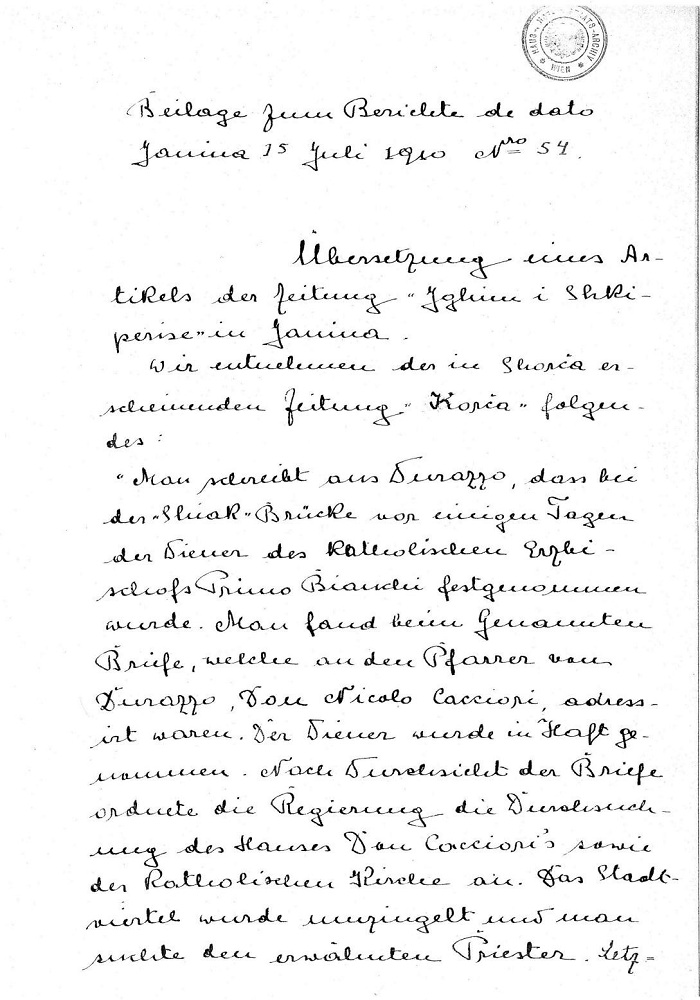 HAUS- HOF- STAATS-ARCHIV * WIEN *
Beilage zum Berichte de dato
Janina 15 Juli 1910 Nro 54.
Übersetzung eines Ar-
tikels der Zeitung "Jghimi i Shki-
perise" in Janina.
Wir entnehmen der in Skorča er-
scheinenden Zeitung "Korča" folgen-
des:
"Man schreibt aus Durazzo, dass bei
der "Shiak" Brücke vor einigen Tagen
der Diener des Katholischen Erzbi-
schofs Primo Bianchi festgenommen
wurde. Man fand beim Genannten
Briefe, welche an den Pfarrer von
Durazzo, Don Nicolo Cacciori, adress-
irt waren. Der Diener wurde in Haft ge-
nommen. Nach Durchsicht der Briefe
ordnete die Regierung die Durchsuch-
ung des Hauses Don Cacciori's sowie
der Katholischen Kirche an. Das Stadt-
viertel wurde umzingelt und man
suchte den erwähnten Priester. Letz-